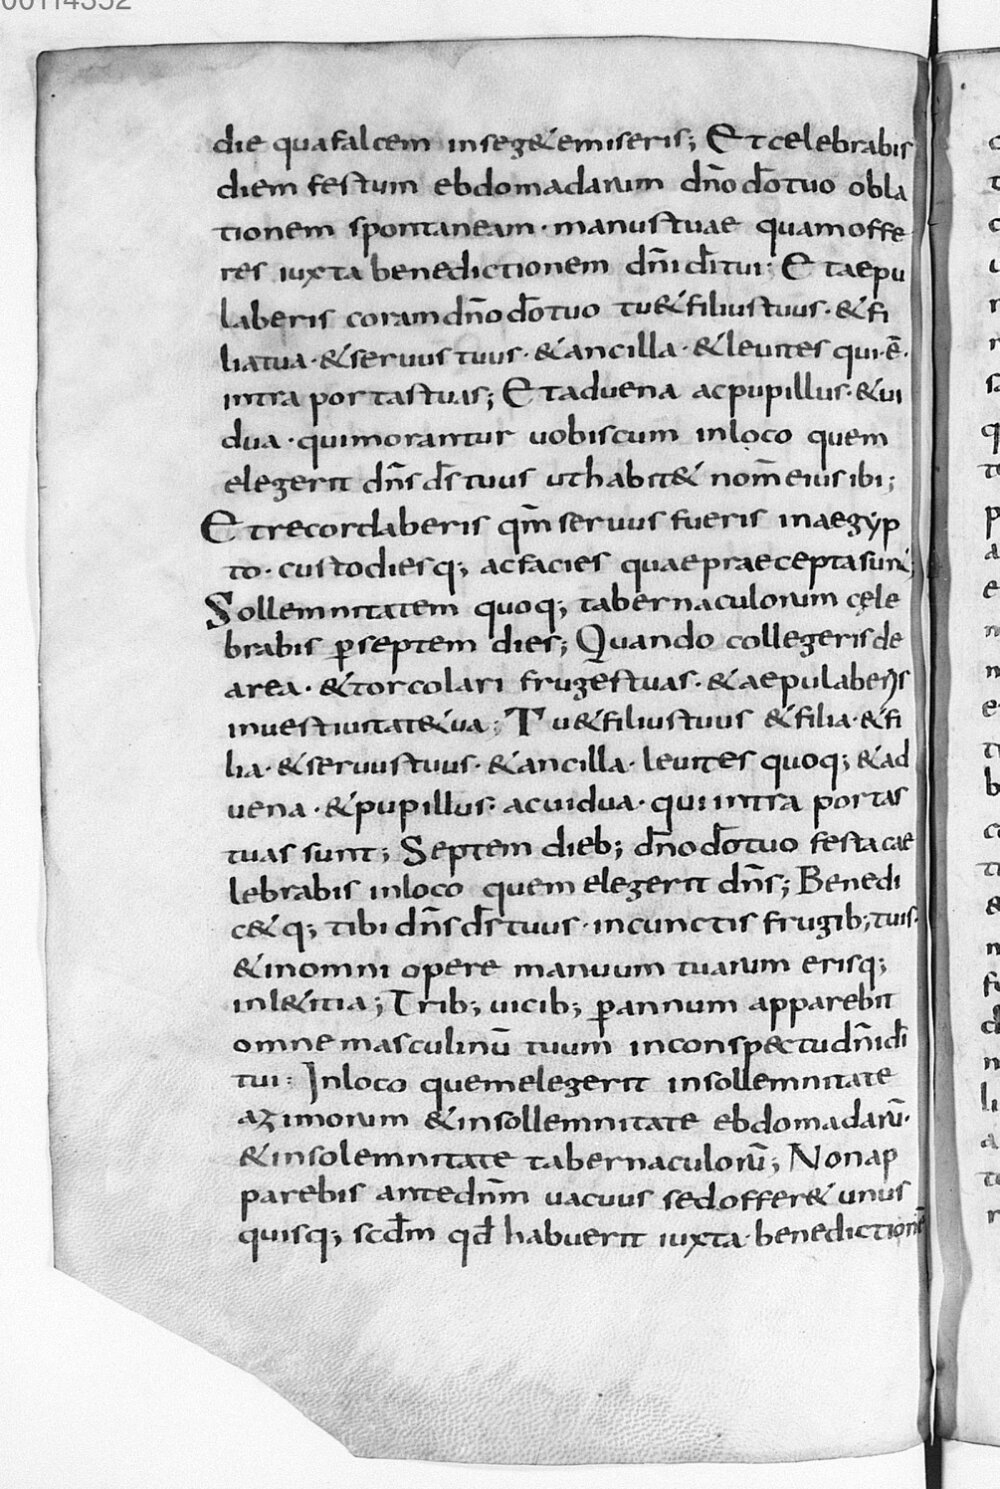 00114352
die qua falcem in seg&emiseris; Et celebrabis
diem festum ebdomadarum dño dõ tuo obla
tionem spontaneam · manus tuae quam offe
res iuxta benedictionem dñi dĩ tui: Et aepu
laberis coram dño dõ tuo tu & filius tuus · & fi
lia tua · & servus tuus · & ancilla · & levites qui · ē ·
intra portas tuas; Et advena ac pupillus · & vi
dua · qui morantur vobiscum in loco quem
elegerit dñs d̄s tuus ut habit& nom̄ eius ibi;
Et recordaberis qm̄ servus fueris in aegyp
to · custodiesq; ac facies quae praecepta sunt;
Sollemnitatem quoq; tabernaculorum cęle
brabis p̱ septem dies; Quando collegeris de
area · & torcolari fruges tuas · & aepulaberis
in uestiuitat& ua; Tu & filius tuus & filia · & fi
lia · & servus tuus · & ancilla · levites quoq; & ad
vena · & pupillus · ac vidua · qui intra portas
tuas sunt; Septem dieb; dño dõ tuo festa cae
lebrabis in loco quem elegerit dñs; Benedi
c& q; tibi dñs d̄s tuus · in cunctis frugib; tuis ·
& in omni opere manuum tuarum erisq;
in l&itia; Trib; uicib; p̱ annum apparebit
omne masculinū tuum in consp&ctu dñi dĩ
tui: In loco quem elegerit in sollemnitate
azimorum & in sollemnitate ebdomadarū ·
& in solemnitate tabernaculorū; Non ap
parebis ante dnm̄ vacuus sed offer& unus
quisq; scdm̄ qd̄ habuerit iuxta · benedictionē